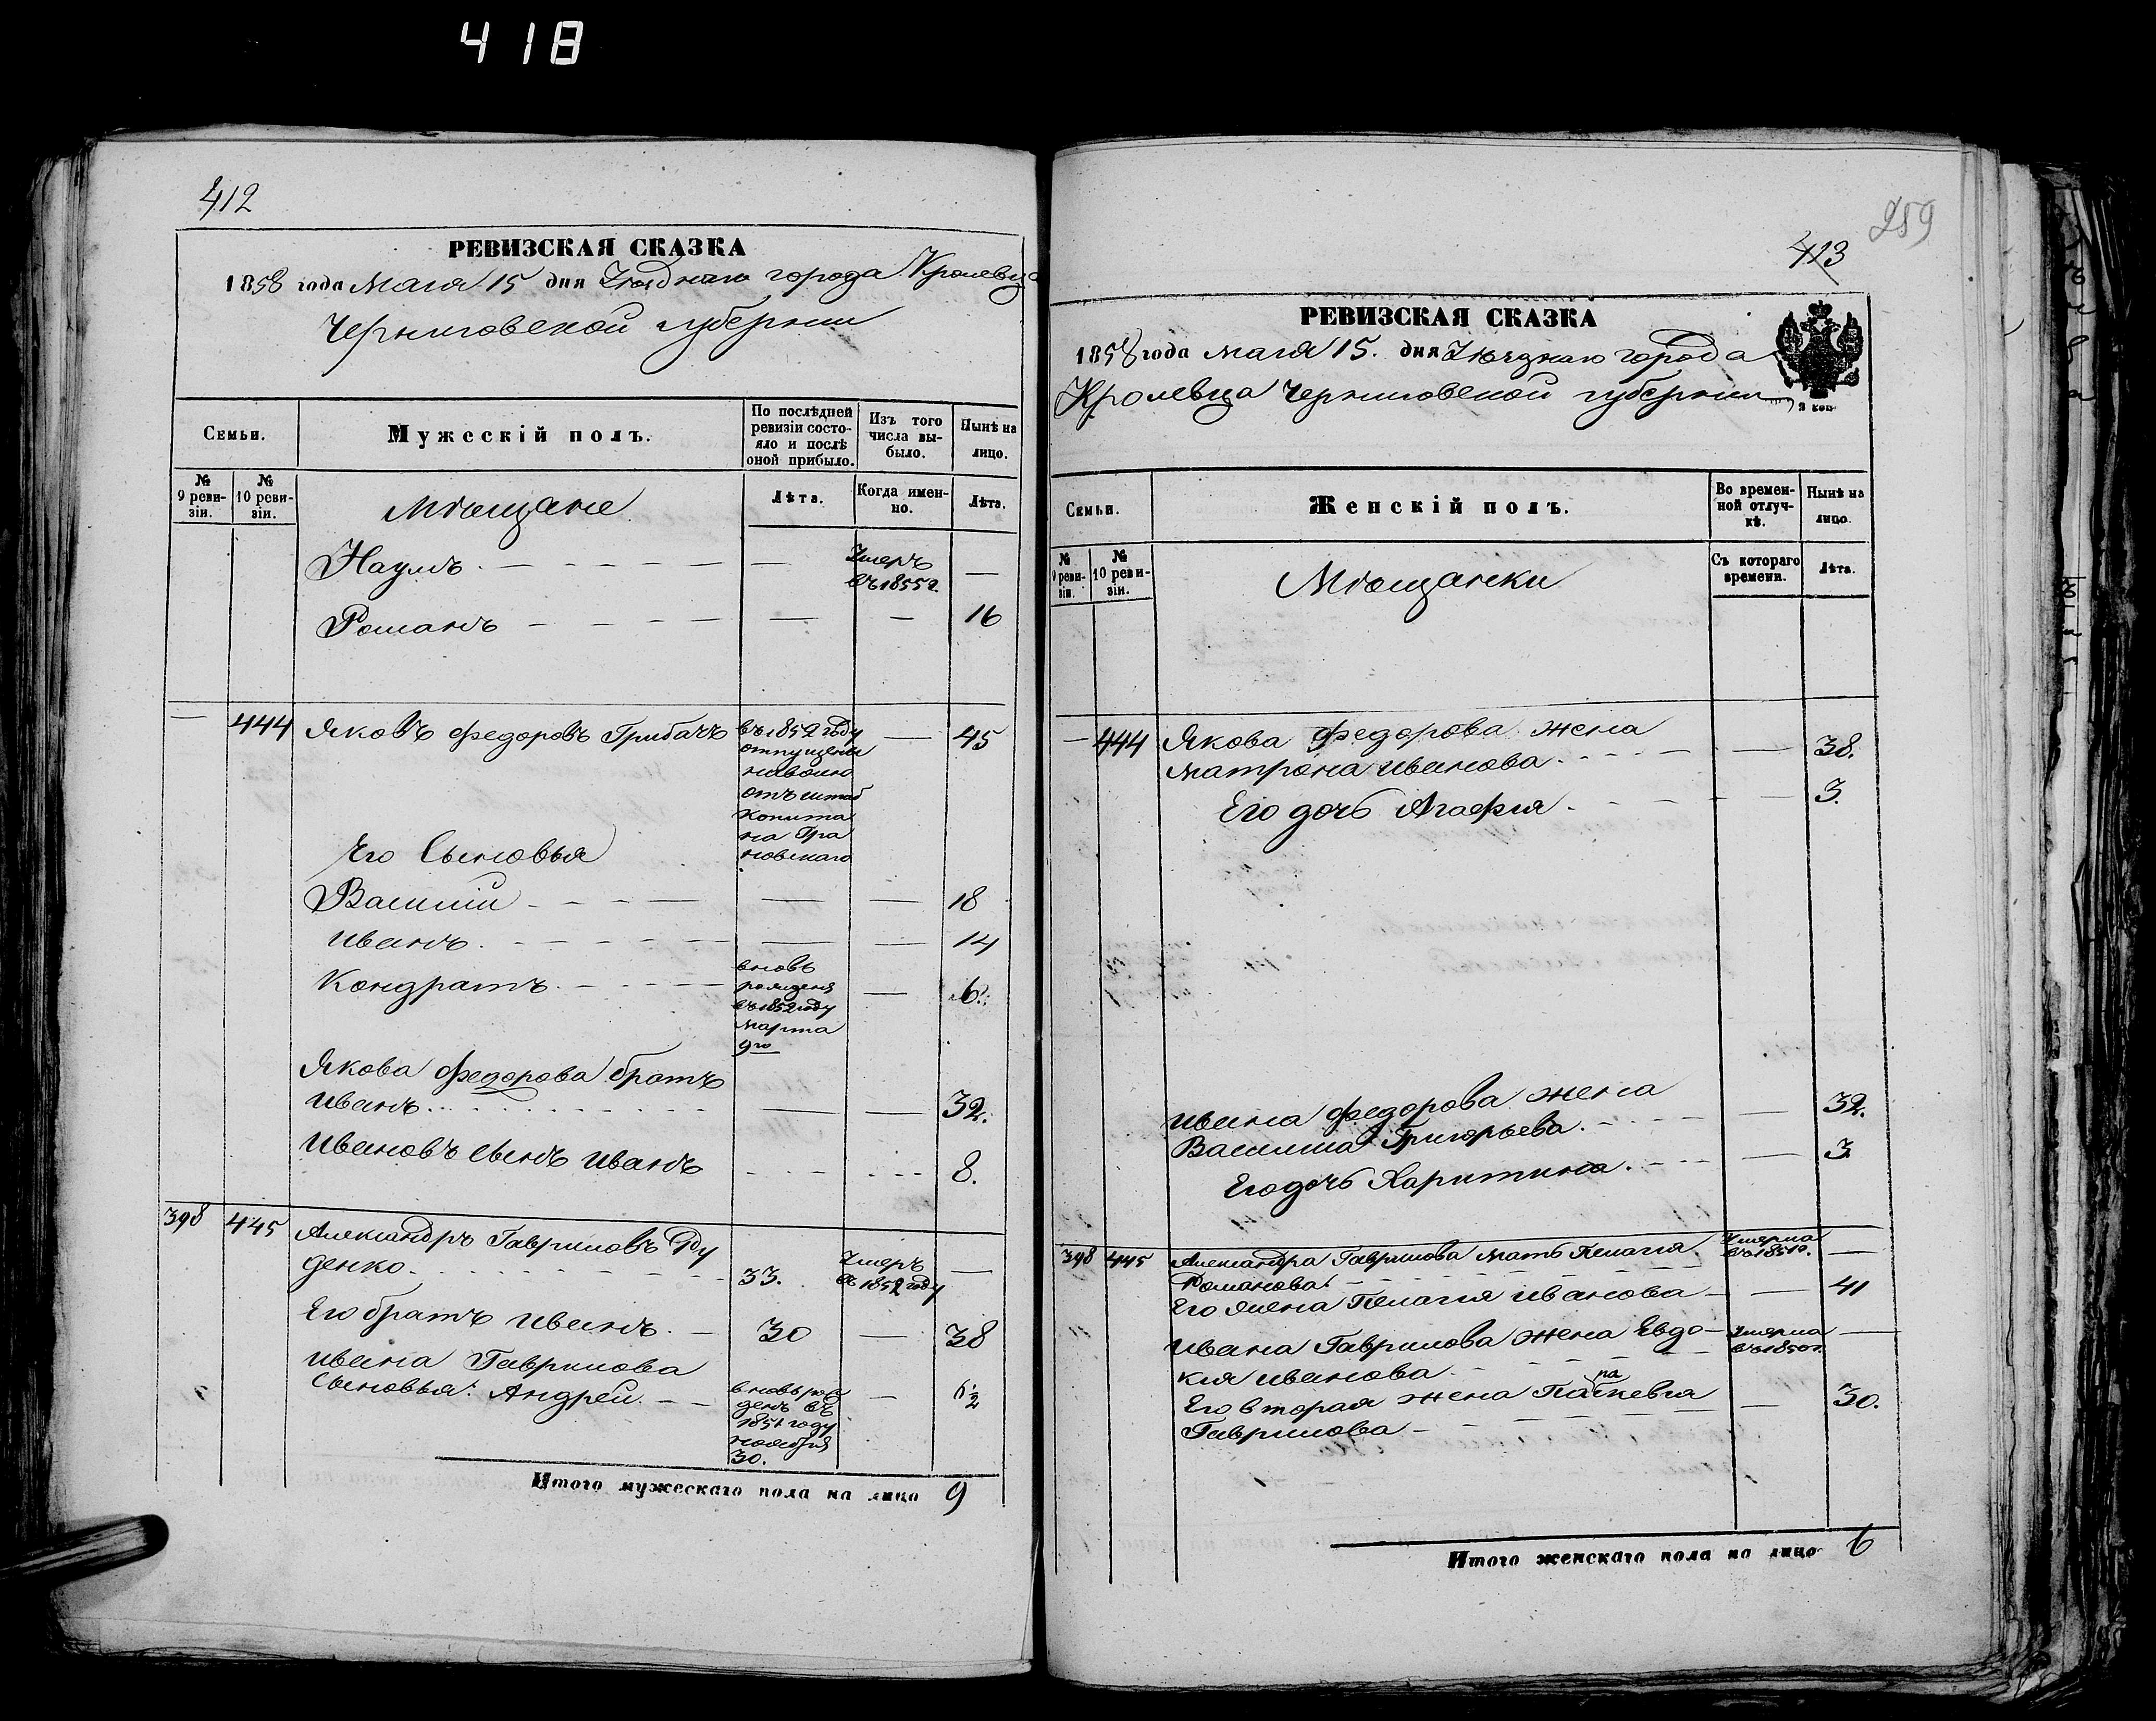 418
412
РЕВИЗСКАЯ СКАЗКА
1858 года Маія 15 дня Уѣзднаго города Кролевца
Черниговской губерніи
Семьи.
Мужескій полъ.
По послѣдней ревизіи состояло и послѣ оной прибыло.
Изъ того числа выбыло.
Нынѣ на лицо.
№ 9 ревизіи.
№ 10 ревизіи.
Мѣщане
Лѣта.
Когда именно.
Лѣта.
Наумъ — Умеръ въ 1855 г. —
Романъ — — 16
— 444 Яковъ Федоровъ Грибачъ въ 1852 году — 45
отпущенъ
наволю
отъ штаб
Капита
на Гра
новскаго
Его Сыновья
Василій — — 18
Иванъ — — 14
Кондратъ вновь — 6
рожденъ
въ 1852 году
марта
9го
Якова Федорова братъ
Иванъ — — 32.
Ивановъ сынъ Иванъ 8.
398 445 Александръ Гавриловъ Ру
денко 33. Умеръ въ 1852 году —
Его братъ Иванъ 30 — 38
Ивана Гаврилова
Сыновья: Андрей вновь рож — 6½
денъ въ
1851 году
ноября
30.
Итого мужескаго пола на лицо 9
259
413
РЕВИЗСКАЯ СКАЗКА
1858 года маія 15. дня Уѣзднаго города
Кролевца Черниговской губерніи
Семьи.
Женскій полъ.
Во временной отлучкѣ.
Нынѣ на лицо.
№ 9 ревизіи.
№ 10 ревизіи.
Мѣщанки
Съ котораго времени.
Лѣта.
— 444 Якова Федорова жена
Матрона Иванова — 38.
Его дочь Агафія — 3.
Ивана Федорова жена
Василиса Григорьева — 32.
Его дочь Харитина — 3
398 445 Александра Гаврилова мать Пелагія Умерла въ 1851 г. —
Романова
Его жена Пелагія Иванова — 41
Ивана Гаврилова жена Евдо- Умерла въ 1850 г. —
кія Иванова
Его вторая жена
Гаврилова — 30.
Итого женскаго пола на лицо 6